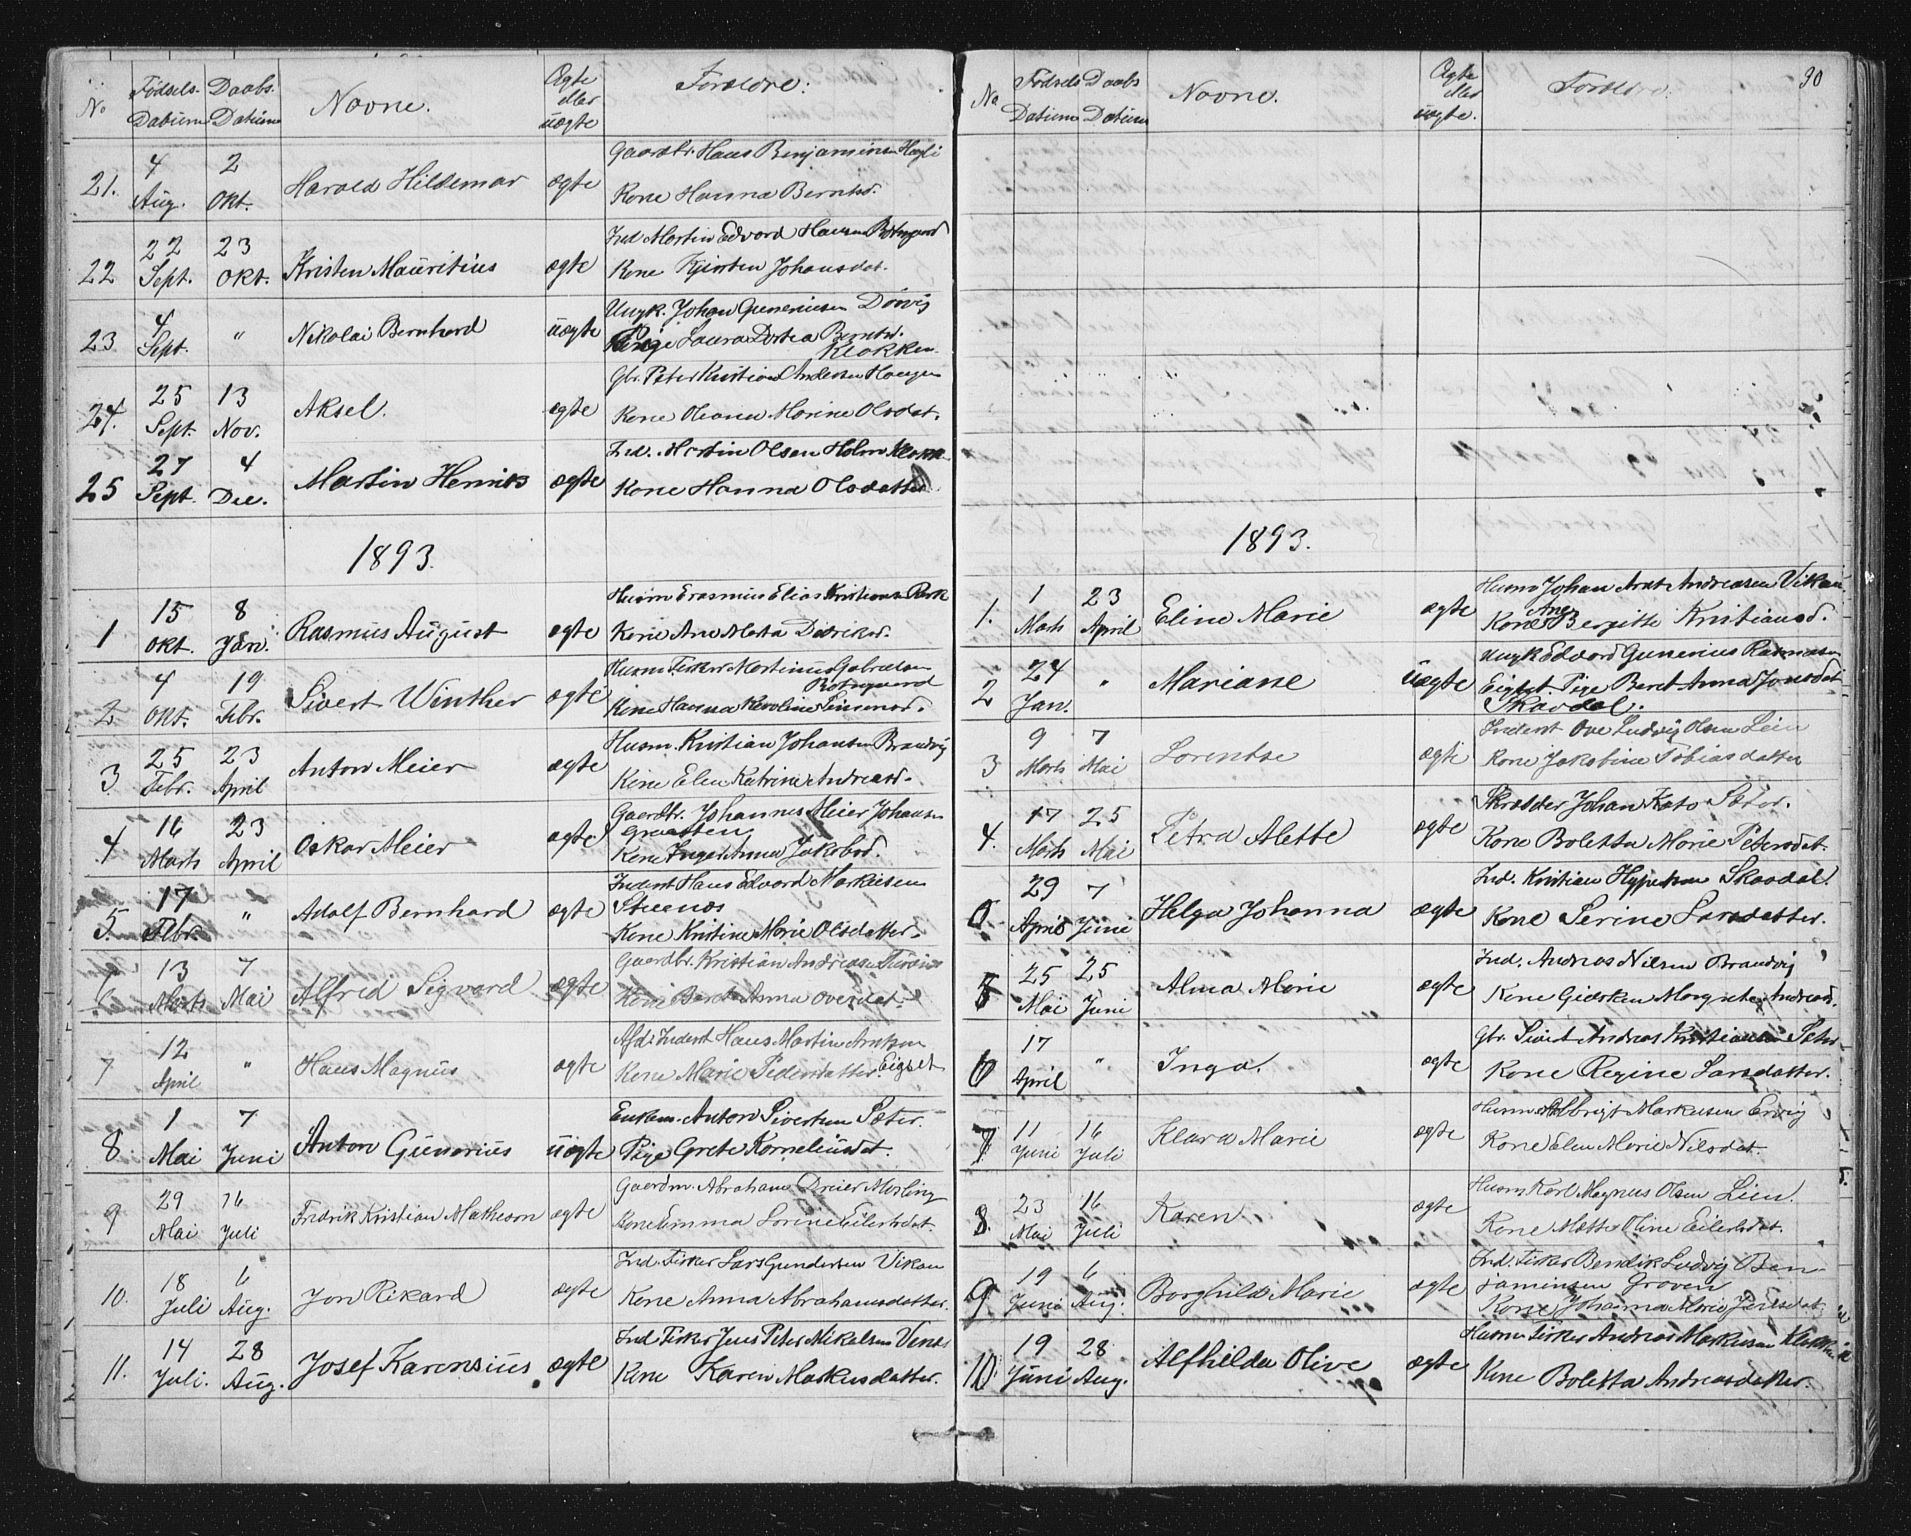 No Fødsels Datum Daabs Datum Navne. Ægte eller uægte Forældre:
21. 4 Aug. 2 Okt. Harald Hildemar ægte Gaardbr. Hans Benjaminsen
Kone Hanna Berntsd.
22 22 Sept. 23 Okt. Kristen Mauritius ægte Ind. Martin Edvard Hansen Botngaard
Kone Kjirsten Johansdat.
23 4 Sept. " Nikolai Bernhard uægte Ungk. Johan Gunerius Dørvig
Pige Laura Dortea Berntsd.
Klakken
24. 25 Sept. 13 Nov. Aksel. ægte Gbr. Peter Kristian Andersen Haugen
Kone Oleana Marine Olsdat.
25 27 Sept. 4 Dec. Martin Henrik ægte Ind. Martin Olsen Holm
Kone Hanna Olsdatter
1893.
1 15 Okt. 8 Jan. Rasmus August ægte Husm Erasmus Elias Kristiansen
Kone Ane Marta Didriksd.
2 4 Okt. 19 Febr. Sivert Winther ægte Husm Fisker Martinus Gabrielsen
Botngaard
Kone Hanna Karoline
3 25 Febr. 23 April Anton Meier ægte Husm. Kristian Johansen Brandvig
Kone Elen Katrine Andreasd.
4 16 Marts 23 April Oskar Meier ægte Gaardbr. Johannes Meier Johansen
Kone Inger Anna Jakobsd.
5. 17 Febr. " Adolf Bernhard ægte Inderst Hans Edvard Markusen
Steenes
Kone Kristine Marie Olsdatter.
6 13 Marts 7 Mai Alfred Sigvard ægte Gaardbr. Kristian Andreasen
Kone Beret Anna Oversdat.
7 12 April " Hans Magnus ægte Afd. Inderst Hans Martin Arntsen
Kone Marie Pedersdatter. Eigset
8 1 Mai 7 Juni Anton Gunerius uægte Enkem. Anton Sivertsen Sæter.
Pige Grete Korneliusdat.
9 29 Mai 16 Juli Fredrik Kristian Matheson ægte Gaardm. Abraham Dreier Mørling
Kone Emma Lorine Eilertsdat.
10. 18 Juli 6 Aug. Jon Rikard ægte Ind. Fisker Lars Gundersen Vikan
Kone Anna Abrahamsdatter.
11. 14 Juli. 28 Aug. Josef Karensius ægte Ind Fisker Jens Peter Mikalsen
Kone Karen Markusdatter.
30
No Fødsels Datum Daabs Datum Navne. Ægte eller uægte. Forældre
1893.
1. 1 Marts 23 April Eline Marie ægte Husm Johan Arnt Andreasen Vikan
Kone Ane Bergitte Kristiansd.
2 24 Jan. " Mariane uægte Ungk Edvard Gunerius Rasmusen
Eigset. Pige Beret Anna Jonsdat
Skavdal.
3 9 Marts 7 Mai Lorentse ægte Inderst Ove Ludvig Olsen Lien
Kone Jakobine Tobiasdatter
4. 17 Marts 25 Mai Petra Alette ægte Skræder Johan Kato Sæter.
Kone Boletta Marie Petersdat.
29 April 7 Juni Helga Johanna ægte Ind. Kristian Skavdal.
Kone Serine Larsdatter.
5 25 Mai 25 Juni Alma Marie ægte Ind. Andreas Nilsen Brandvig
Kone Gjertken Margrete Andreasd.
6 17 April " Inga. ægte Gbr. Sivert Andreas Kristiansen Sæter
Kone Regine Larsdatter.
7 11 Juni 16 Juli Klara Marie ægte Husm Albrigt Markusen Ervig
Kone Elen Marie Nilsdat.
8 23 Mai 16 Juli Karen ægte Husm Karl Magnus Olsen Lien.
Kone Mette Oline Eilertsdat.
9 19 Juni 6 Aug. Borghild Marie ægte Ind. Fisker Bendik Ludvig Ben-
jaminsen Grøven
Kone Johanna Marie Jensdat
10 19 Juni 28 Aug. Alfhilda Olive ægte Husm Fisker Andreas Markusen Klakken
Kone Boletta Andreasdatter.